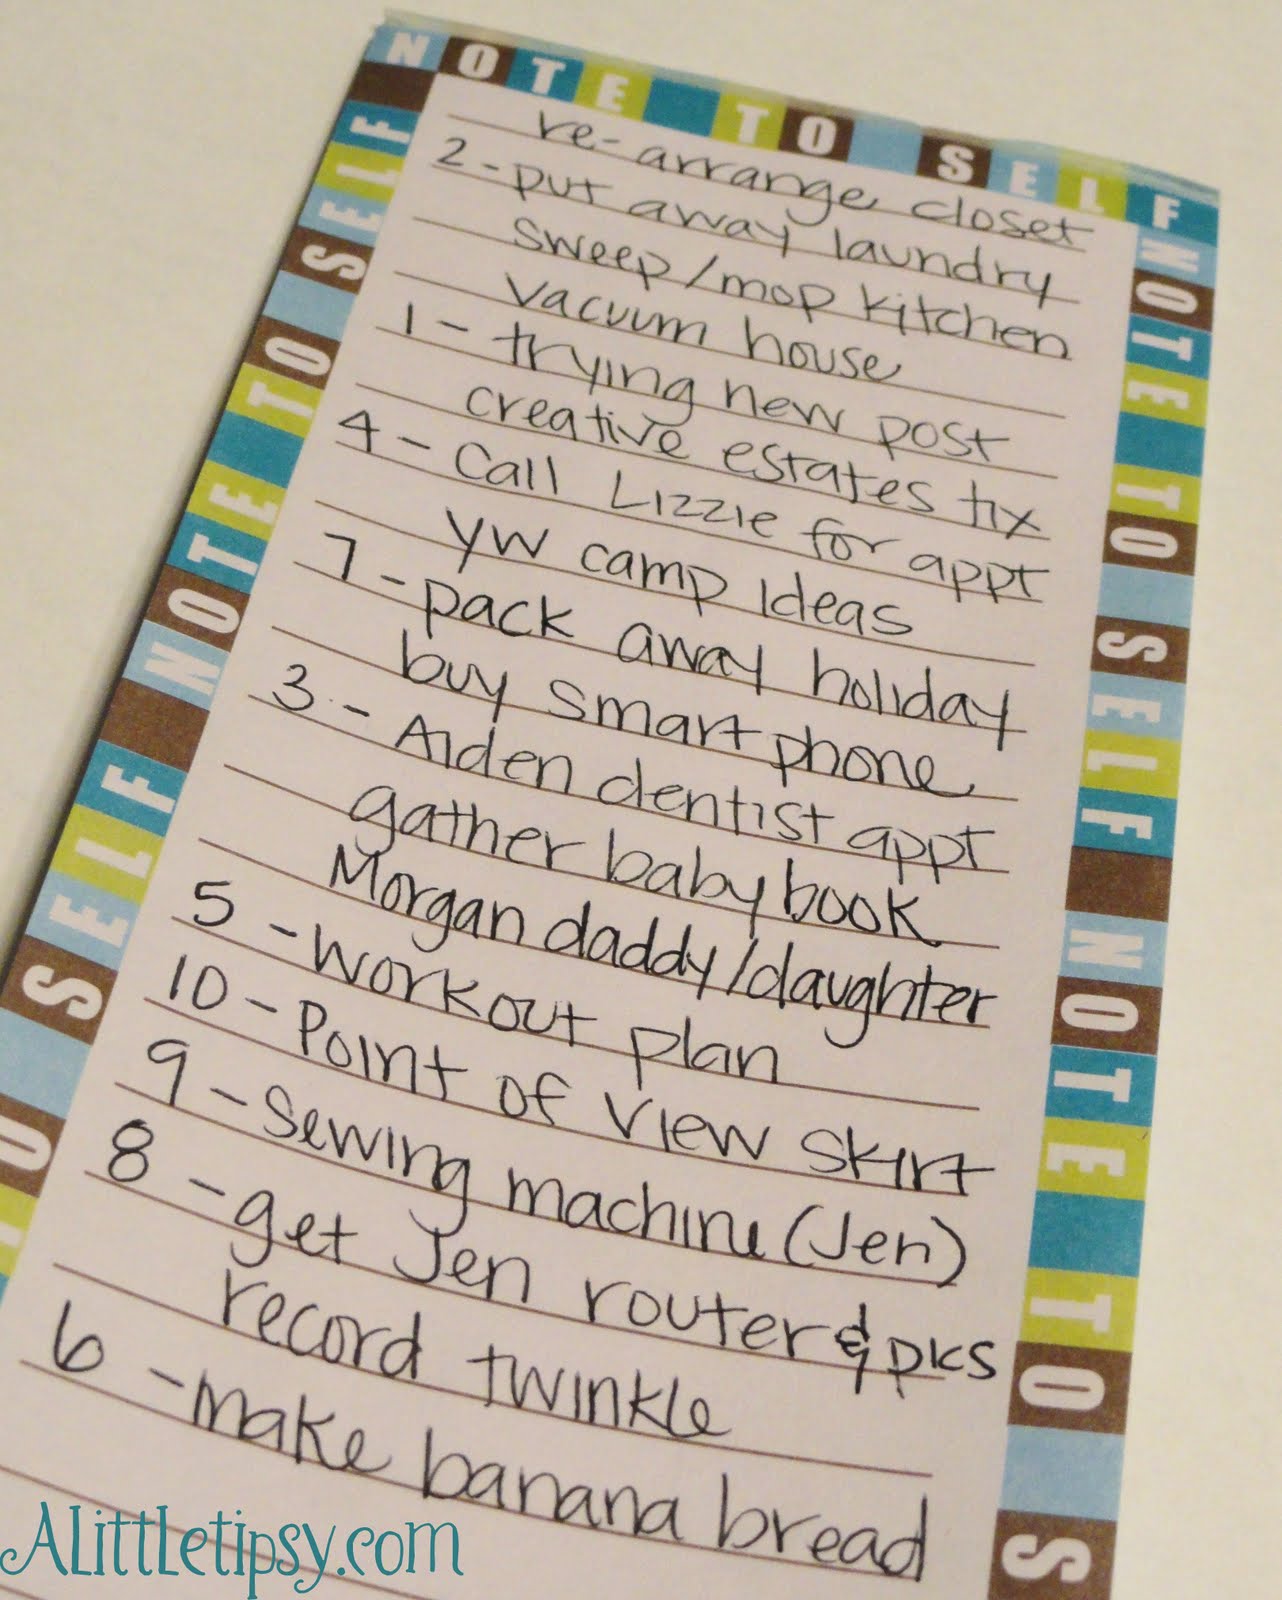 NOTE TO SELF
re-arrange closet
2 - put away laundry
sweep/mop kitchen
vacuum house
1 - trying new post
creative estates tix
4 - Call Lizzie for appt
yw camp ideas
7 - pack away holiday
buy smart phone
3 - Aiden dentist appt
gather baby book
Morgan daddy/daughter
5 - workout plan
10 - Point of view skirt
9 - Sewing machine (Jen)
8 - get Jen router & pks
record twinkle
6 - make banana bread
NOTE TO SELF NOTE TO S
NOTE TO SELF NOTE TO SELF NOTE TO S
ALittletipsy.com